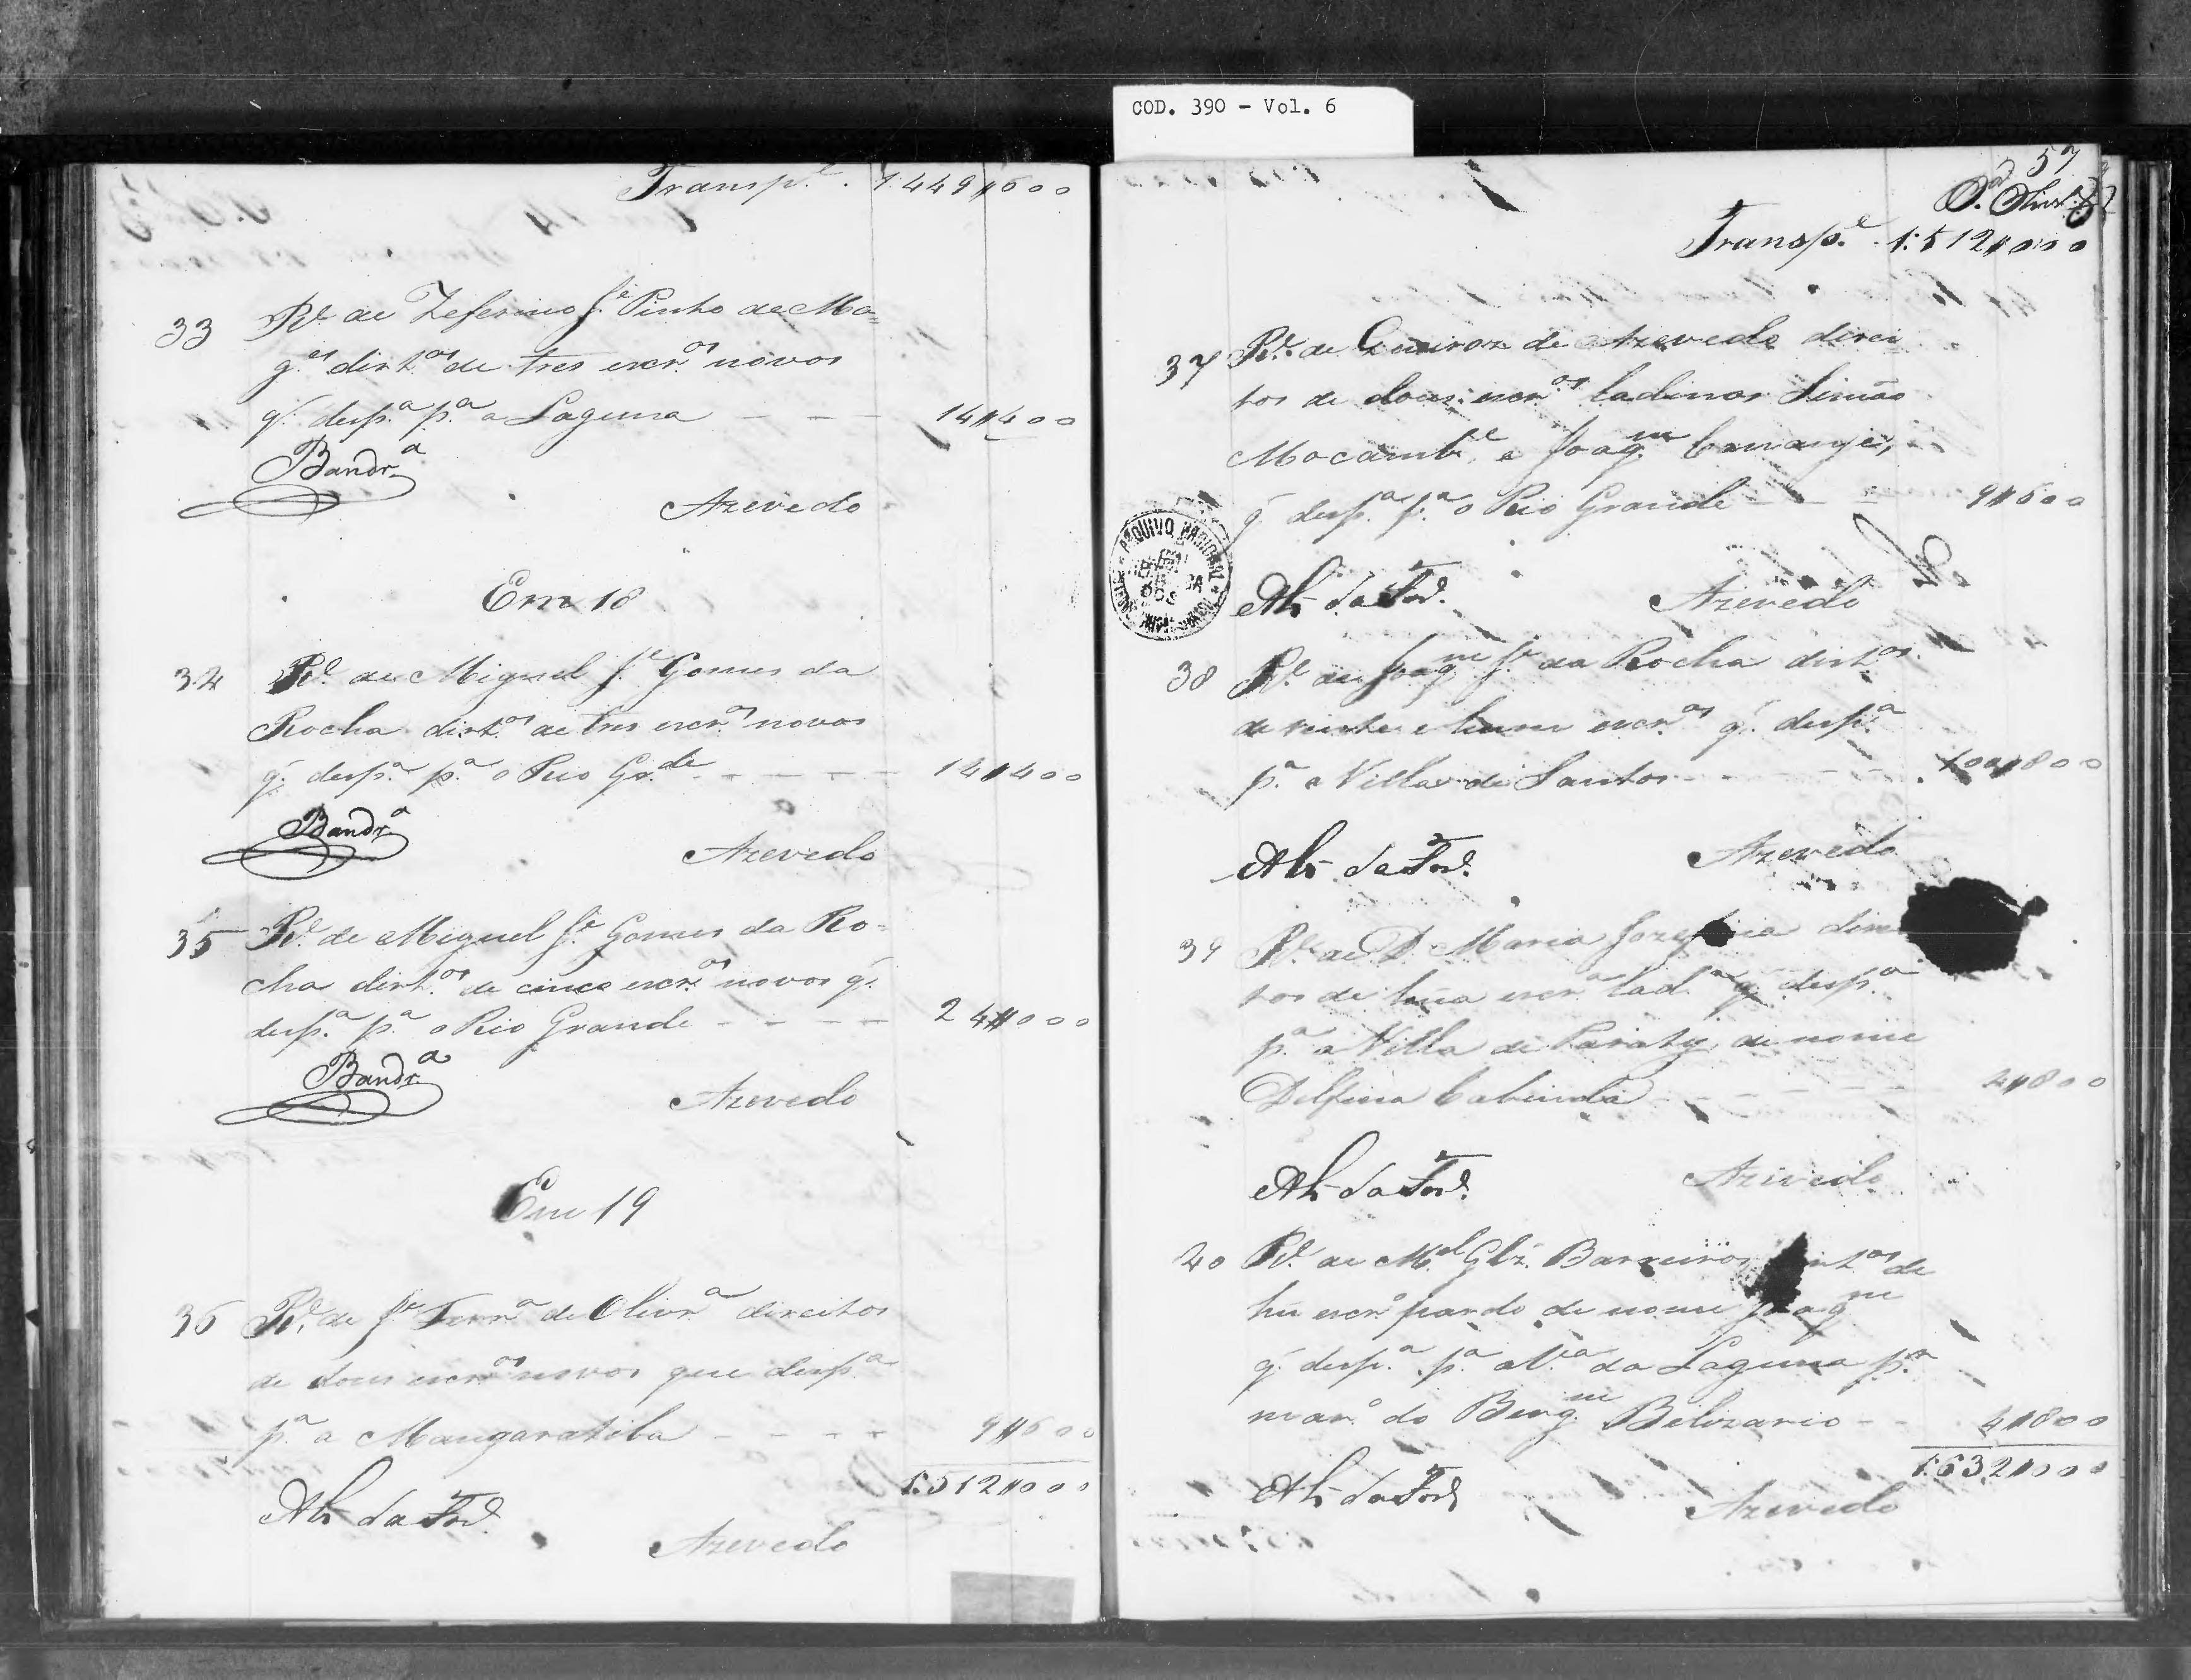 COD. 390 - Vol. 6
Transp.e 1:449#600
33 R.e de Zeferino J.e Pinho de Ma=
g.es dirt.os de tres escr.os novos
q.' desp.a p.a a Laguna - - - 14#400
Bandr.a
Azevedo
Em 18
34 R.e de Miguel J.e Gomes da
Rocha dirt.os de tres escr.os novos
q.' desp.a p.a o Rio Gr.de - - - - - 14#400
Bandr.a
Azevedo
35 R.e de Miguel J.e Gomes da Ro=
cha dirt.os de cinco escr.os novos q.'
desp.a p.a o Rio Grande - - - - 24#000
Bandr.a
Azevedo
Em 19
36 R.e de J.e Ferr.a de Olivr.a direitos
de dous escr.os novos que desp.a
p.a a Mangaratiba - - - - 9#600
1:512#000
da
Azevedo
57
Transp.e 1:512#000
37 R.e de Queiroz de Azevedo direi
tos de dous escr.os ladinos Simão
Mocamb.e e Joaq.m Camange,
q.' desp.a p.a o Rio Grande - - - 9#600
ARQUIVO NACIONAL
da
Azevedo
38 R.e de Joaq.m J.e da Rocha dirt.os
de vinte e hum escr.os q.' desp.a
p.a a Villa de Santos - - - - 100#800
da
Azevedo
39 R.e de D. Maria Jozefina direi
tos de hũa escr.a lad.a q.' desp.a
p.a a Villa de Paraty, de nome
Delfina Cabinda - - - - - 4#800
da
Azevedo
40 R.e de M.el Glz. Barreiros dirt.os de
hũ escr.o pardo de nome Joaq.m
q.' desp.a p.a a V.a da Laguna p.a
mar.o do Berg.m Belizario - - 4#800
1:632#000
da
Azevedo